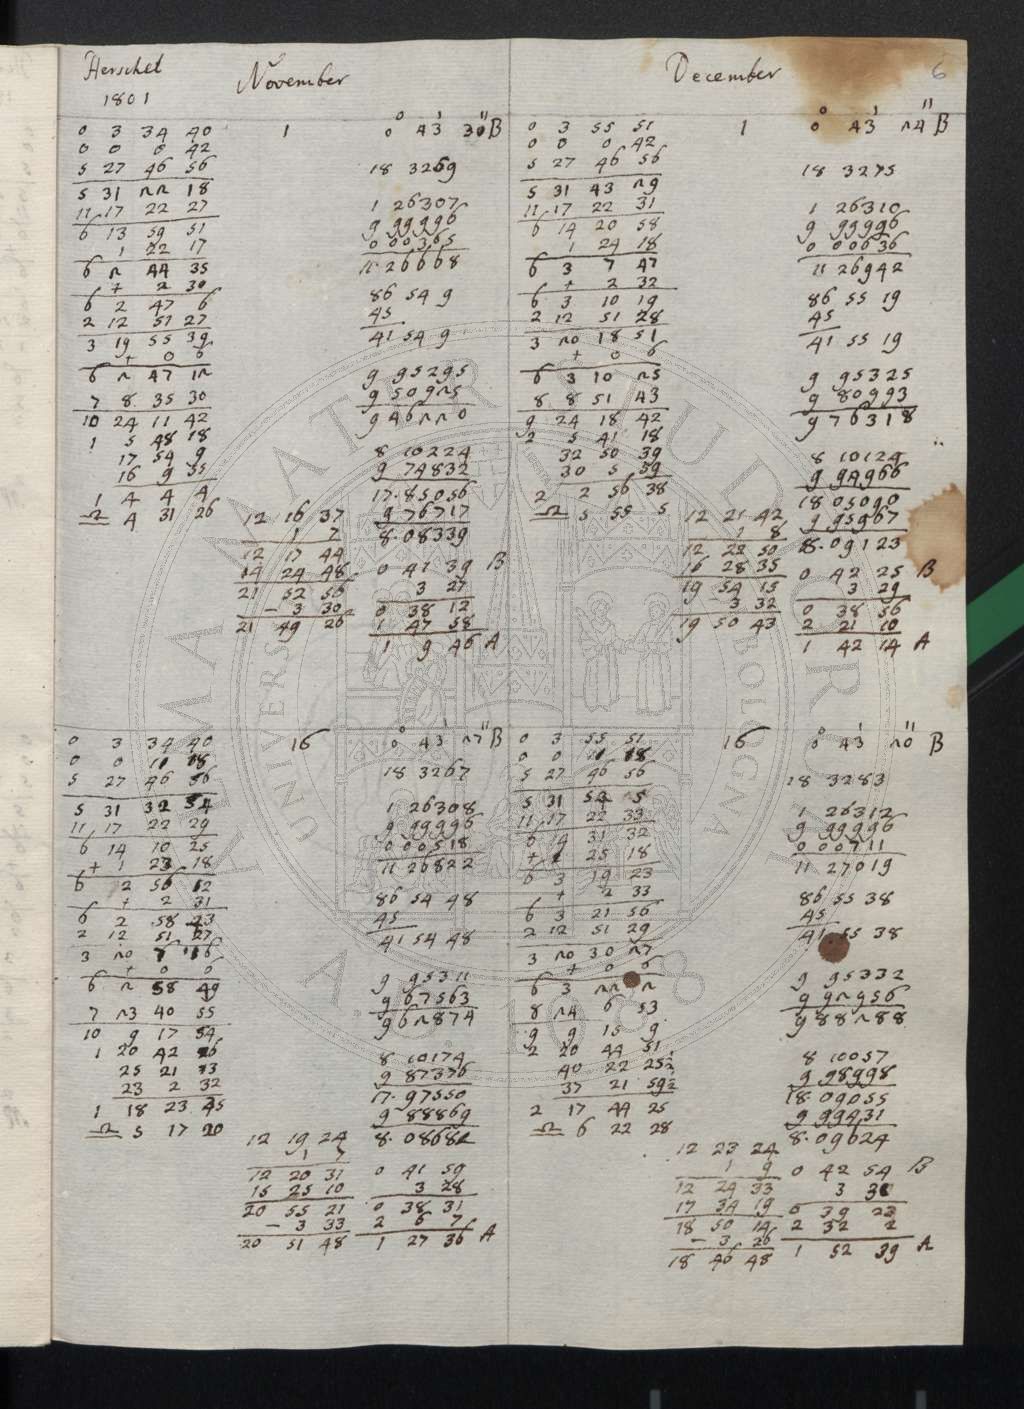 Herschel
1801
November
0 3 34 40
0 0 0 42
5 27 46 56
5 31 22 18
11 17 22 27
6 13 59 51
1 22 17
6 2 44 35
+ 2 30
6 2 47 6
2 12 51 27
3 19 55 39
+ 0 6
6 2 47 12
7 8 35 30
10 24 11 42
1 5 48 18
17 54 9
16 9 55
1 4 4 4
♎ 4 31 26
1
12 16 37
1 7
12 17 44
14 24 48
21 52 56
- 3 30
21 49 26
0° 43' 30" B
18 3269
1 26307
9 99996
0 00365
11 26668
86 54 9
45
41 54 9
9 95295
9 50925
9 46220
8 10224
9 74832
17.85056
9 76717
8.08339
0 41 39 B
3 27
0 38 12
1 47 58
1 9 46 A
December
6
0 3 55 51
0 0 0 42
5 27 46 56
5 31 43 29
11 17 22 31
6 14 20 58
1 24 18
6 3 7 47
+ 2 32
6 3 10 19
2 12 51 28
3 20 18 51
+ 0 6
6 3 10 25
8 8 51 43
9 24 18 42
2 5 41 18
32 50 39
30 5 59
2 2 56 38
♎ 5 55 5
1
12 21 42
1 8
12 22 50
16 28 35
19 54 15
- 3 32
19 50 43
0° 43' 24" B
18 3275
1 26310
9 99996
0 00636
11 26942
86 55 19
45
41 55 19
9 95325
9 80993
9 76318
8 10124
9 94966
18 05090
9 95967
8.09123
0 42 25 B
3 29
0 38 56
2 21 10
1 42 14 A
0 3 34 40
0 0 11 18
5 27 46 56
5 31 32 54
11 17 22 29
6 14 10 25
+ 1 23 18
6 2 56 12
+ 2 31
6 2 58 23
2 12 51 27
3 20 7 16
+ 0 6
6 2 58 49
7 23 40 55
10 9 17 54
1 20 42 26
25 21 13
23 2 32
1 18 23 45
♎ 5 17 20
16
12 19 24
1 7
12 20 31
15 25 10
20 55 21
- 3 33
20 51 48
0° 43' 27" B
18 3267
1 26308
9 99996
0 00518
11 26822
86 54 48
45
41 54 48
9 95311
9 67563
9 62874
8 10174
9 87376
17.97550
9 88869
8.08682
0 41 59
3 28
0 38 31
2 6 7
1 27 36 A
0 3 55 51
0 0 11 18
5 27 46 56
5 31 54 5
11 17 22 33
6 14 31 32
+ 1 25 18
6 3 19 23
+ 2 33
6 3 21 56
2 12 51 29
3 20 30 27
+ 0 6
6 3 22 2
8 24 6 53
9 9 15 9
2 20 44 51
40 22 25½
37 21 59½
2 17 44 25
♎ 6 22 28
16
12 23 24
1 9
12 24 33
17 34 19
18 50 14
- 3 26
18 46 48
0° 43' 20" B
18 3283
1 26312
9 99996
0 00711
11 27019
86 55 38
45
41 55 38
9 95332
9 92956
9 88288
8 10057
9 98998
18.09055
9 99431
8.09624
0 42 54 B
3 30
0 39 23
2 32 2
1 52 39 A
ALMA MATER STUDIORUM
UNIVERSITÀ DI BOLOGNA
1088